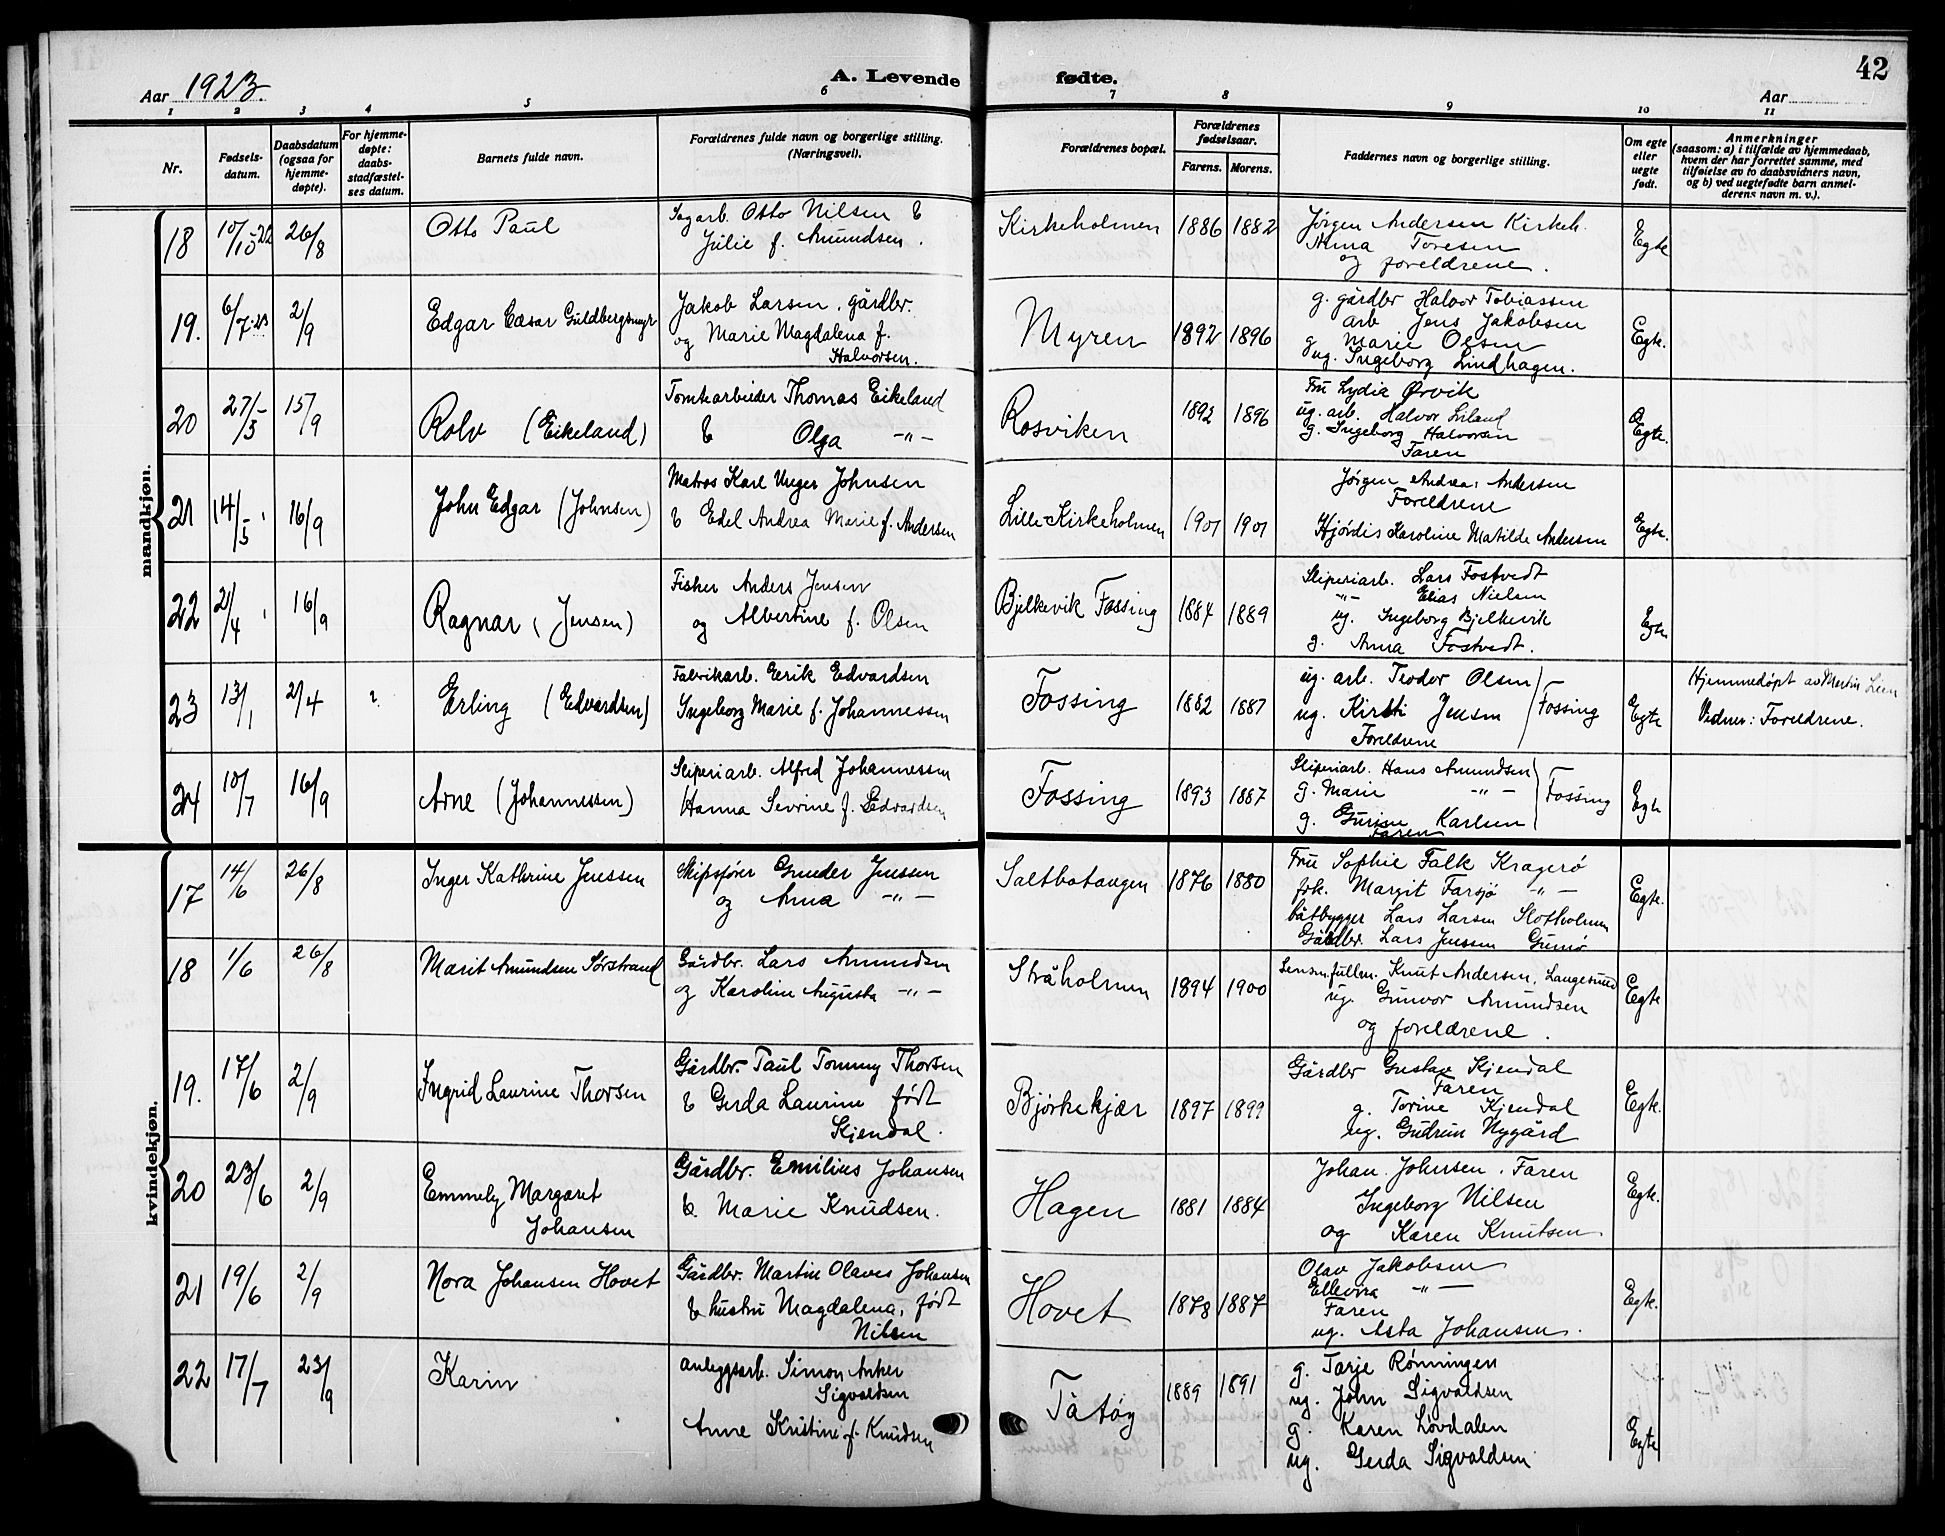 Aar 1923.
A. Levende fødte.
Aar
42
1 2 3 4 5 6 7 8 9 10 11
Nr.
Fødsels-
datum.
Daabsdatum
(ogsaa for
hjemme-
døpte).
For hjemme-
døpte:
daabs-
stadfæstel-
ses datum.
Barnets fulde navn.
Forældrenes fulde navn og borgerlige stilling.
(Næringsvei).
Forældrenes bopæl.
Forældrenes
fødselsaar.
Farens. Morens.
Faddernes navn og borgerlige stilling.
Om egte
eller
uegte
født.
Anmerkninger
(saasom: a) i tilfælde av hjemmedaab,
hvem der har forrettet samme, med
tilføielse av to daabsvidners navn,
og b) ved uegtefødte barn anmel-
derens navn m. v.).
mandkjøn.
18 10/15-22 26/8 Otto Paul
Sagarb. Otto Nilsen &
Julie f. Amundsen.
Kirkeholmen 1886 1882
Jørgen Andersen Kirkeh.
Anna Toresen
og foreldrene.
Egte
19. 6/7-23 2/9 Edgar Cæsar Guldbergsmyr
Jakob Larsen, gårdbr.
og Marie Magdalena f.
Halvorsen.
Myren 1892 1896
g. gårdbr Halvor Tobiassen
arb Jens Jakobsen
g Marie Olsen
ug. Ingeborg Lindhagen.
Egte.
20 27/5 15/9 Rolv (Eikeland)
Tomtearbeider Thomas Eikeland
& Olga -"-
Rosviken 1892 1896
Fru Lydia Ørvik
ug. arb. Halvor Liland
g. Ingeborg Halvorsen
Faren
Egte.
21 14/5 16/9 John Edgar (Johnsen)
Matros Karl Unger Johnsen
& Edel Andrea Marie f. Andersen
Lille-Kirkeholmen 1901 1901
Jørgen Andreas Andersen
Foreldrene
Hjørdis Karoline Matilde Andersen
Egte.
22 21/4 16/9 Ragnar (Jensen)
Fisker Anders Jensen
og Albertine f. Olsen
Bjelkevik Fossing 1884 1889
Sliperiarb. Lars Fostvedt
-"- Elias Nielsen
ug. Ingeborg Bjelkevik
g. Anna Fostvedt.
Egte
23 13/1 2/4 ? Erling (Edvardsen)
Fabrikarb. Eerik Edvardsen
Ingeborg Marie f. Johannessen
Fossing 1882 1887
ug. arb. Teodor Olsen
ug. Kirsti Jensen Fossing
Foreldrene
Egte
Hjemmedøpt av Martin Lien
Vidner: Foreldrene.
24 10/7 16/9 Arne (Johannessen)
Sliperiarb. Alfred Johannessen
Hanna Sevrine f. Edvardsen
Fossing 1893 1887
Sliperiarb. Hans Amundsen
g. Marie -"- Fossing
g. Gurine Karlsen
Faren
Egte
kvindekjøn.
17 14/6 26/8 Inger Kathrine Jenssen
Skipsfører Gunder Jenssen
og Anna -"-
Saltbutangen 1876 1880
Fru Sophie Falk Kragerø
frk. Margit Farsjø -"-
båtbygger Lars Larsen Slotholmen
Gårdbr. Lars Jenssen Gumø
Egte.
18 1/6 26/8 Marit Amundsen Sørstrand
Gårdbr. Lars Amundsen
og Karoline Augusta -"-
Stråholmen 1894 1900
Lensm.fullm. Knut Andersen, Langesund
ug. Gunvor Amundsen
og foreldrene.
Egte
19. 17/6 2/9 Ingrid Laurine Thorsen
Gårdbr. Paul Tommy Thorsen
& Gerda Laurine født
Kjendal.
Bjørkekjær 1897 1899
Gårdbr Gustav Kjendal
Faren
g. Torine Kjendal
ug. Gudrun Nygård
Egte.
20 23/6 2/9 Emmely Margaret
Johansen
Gårdbr. Emilius Johansen
& Marie Knudsen.
Hagen 1881 1884
Johan Johnsen. Faren
Ingeborg Nilsen
og Karen Knutsen.
Egte.
21 19/6 2/9 Nora Johansen Hovet
Gårdbr. Martin Olaves Johansen
& hustru Magdalena, født
Nilsen
Hovet 1878 1887
Olav Jakobsen
Ellevira -"-
Faren
ug. Asta Johansen.
Egte.
22 17/7 23/9 Karin
anleggsarb. Simon Anker
Sigvaldsen
Anne Kristine f. Knudsen
Tåtøy 1889 1891
g. Tarje Rønningen
ug. John Sigvaldsen
g. Karen Løvdalen
ug. Gerda Sigvaldsen
Egte